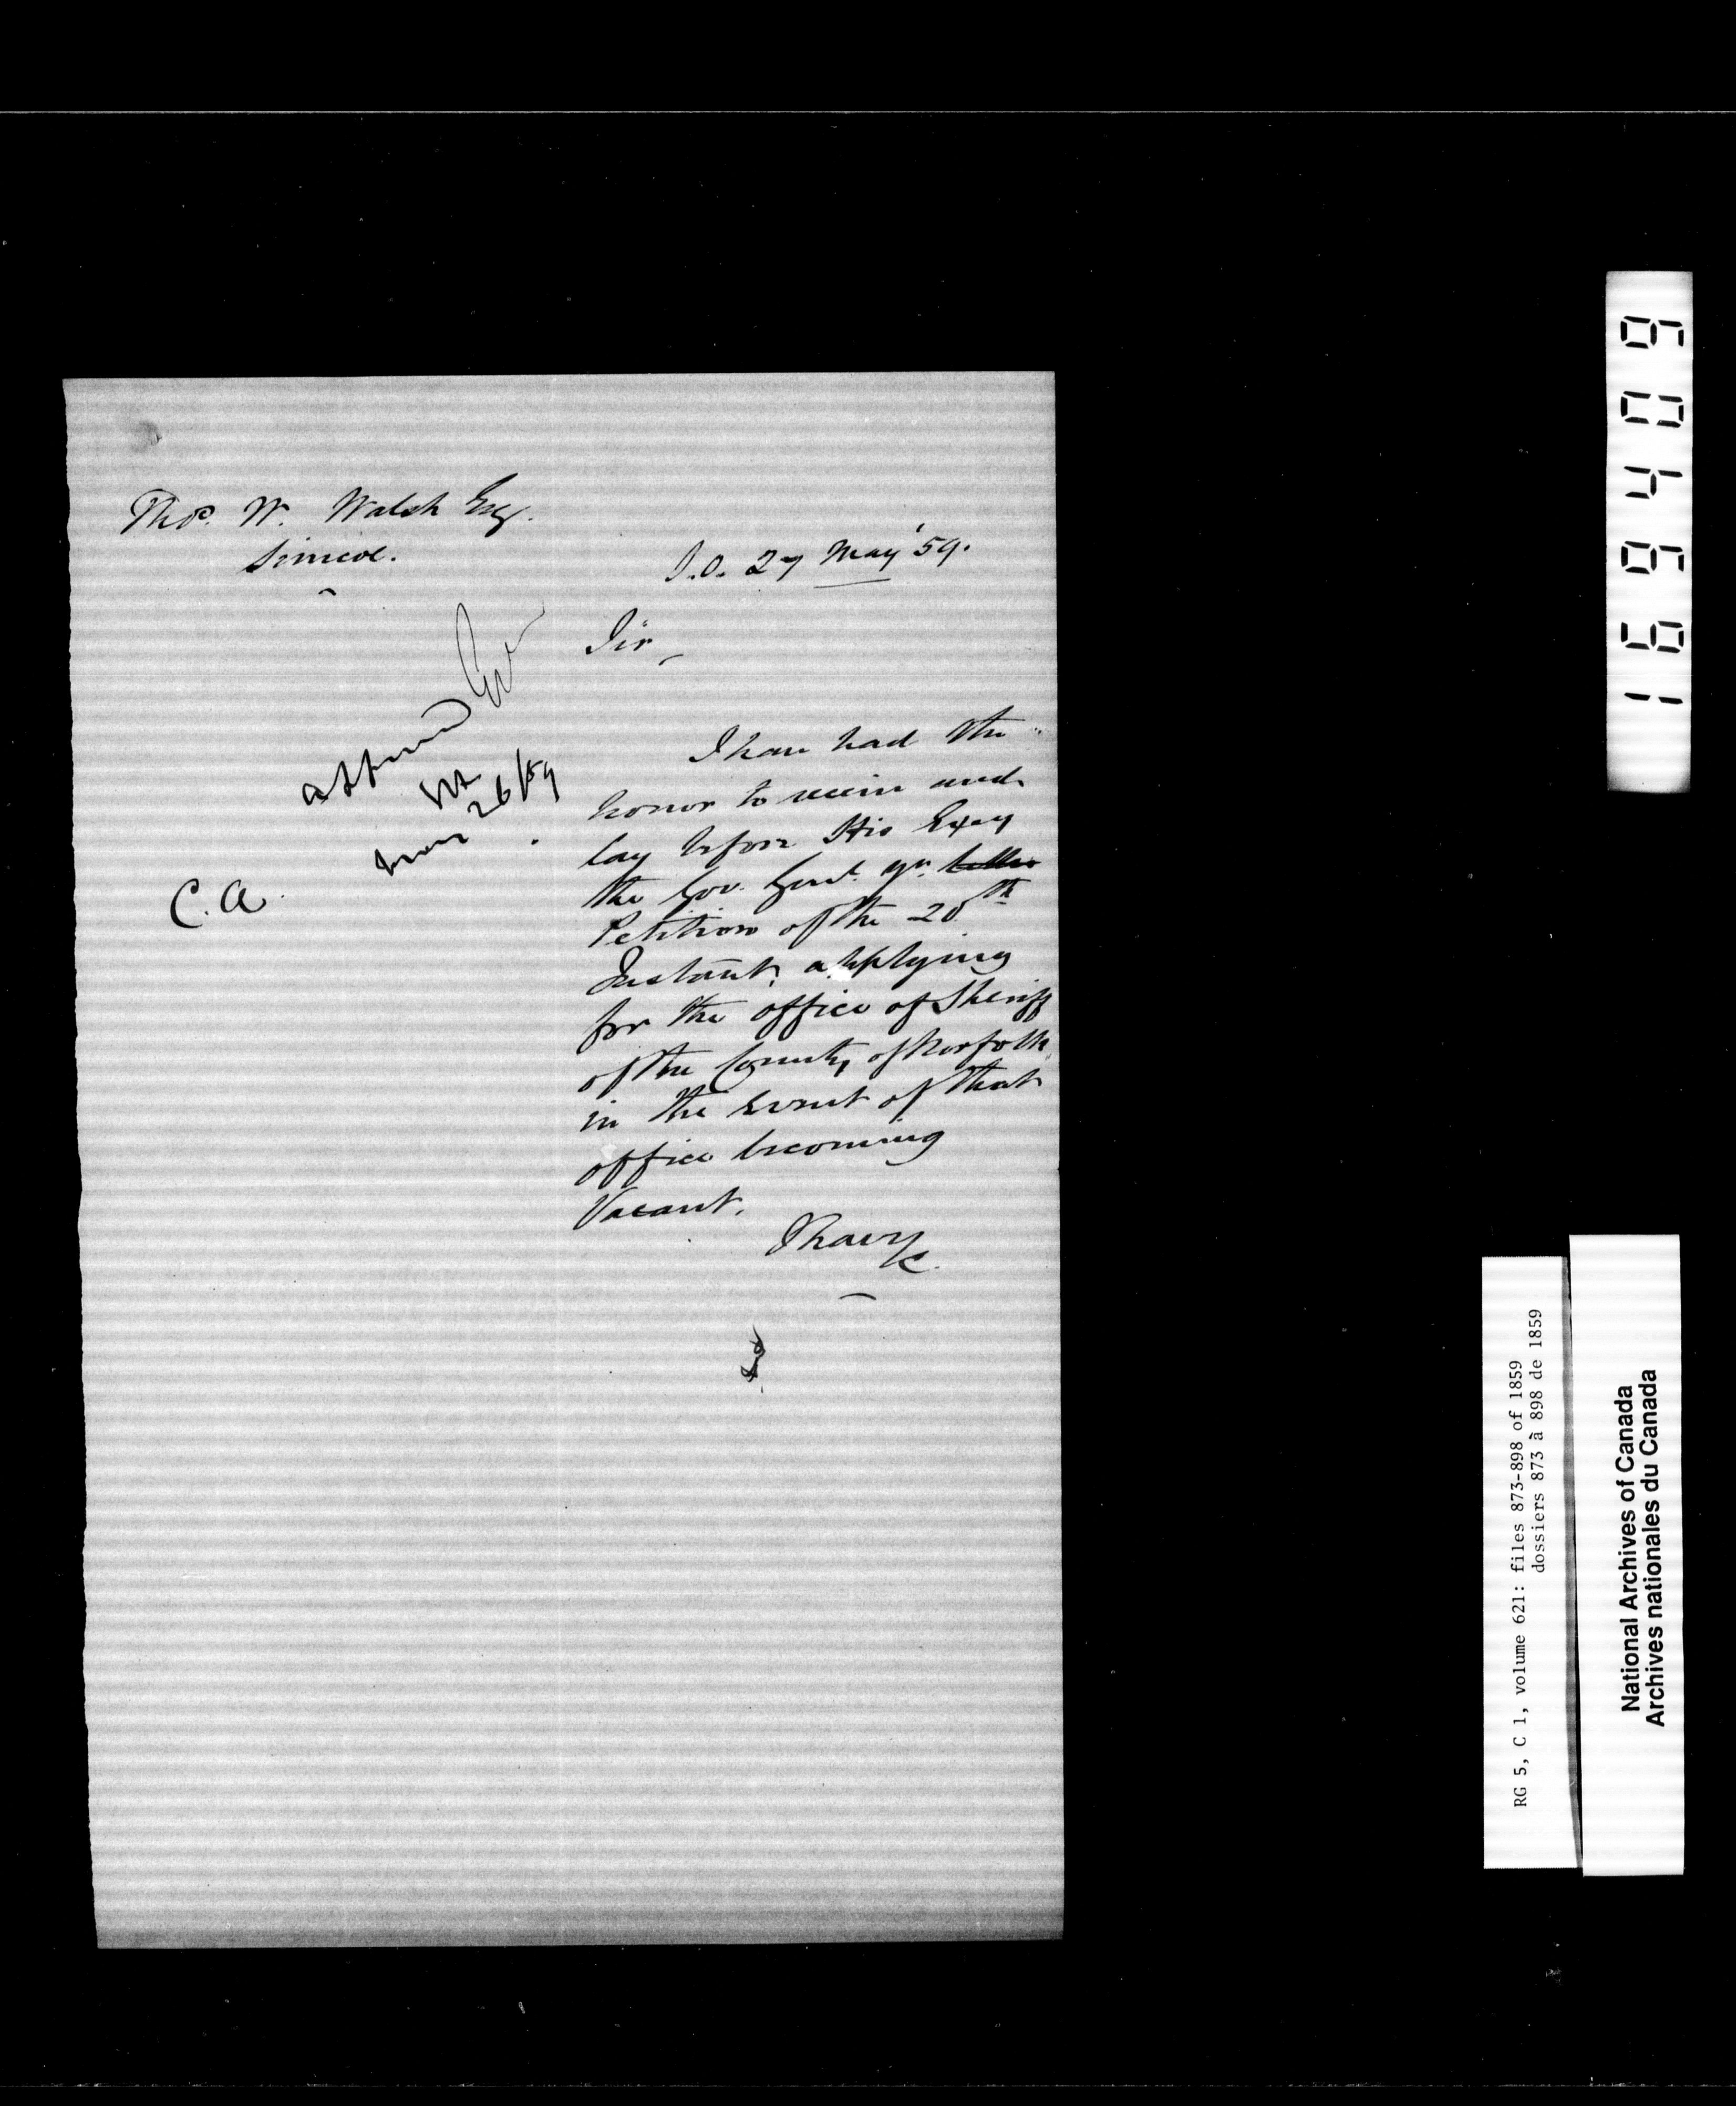 Thos. W. Walsh Esq.
Simcoe.
S.O. 27 May '59.
Sir,
Approved
May 26/59
C.A.
I have had the
honor to receive and
lay before His Excy
the Gov. Genl. yr. letter
Petition of the 20th
Instant, applying
for the office of Sheriff
of the County of Norfolk
in the event of that
office becoming
Vacant.
I have &c.
169409
RG 5, C 1, volume 621: files 873-898 of 1859
dossiers 873 à 898 de 1859
National Archives of Canada
Archives nationales du Canada